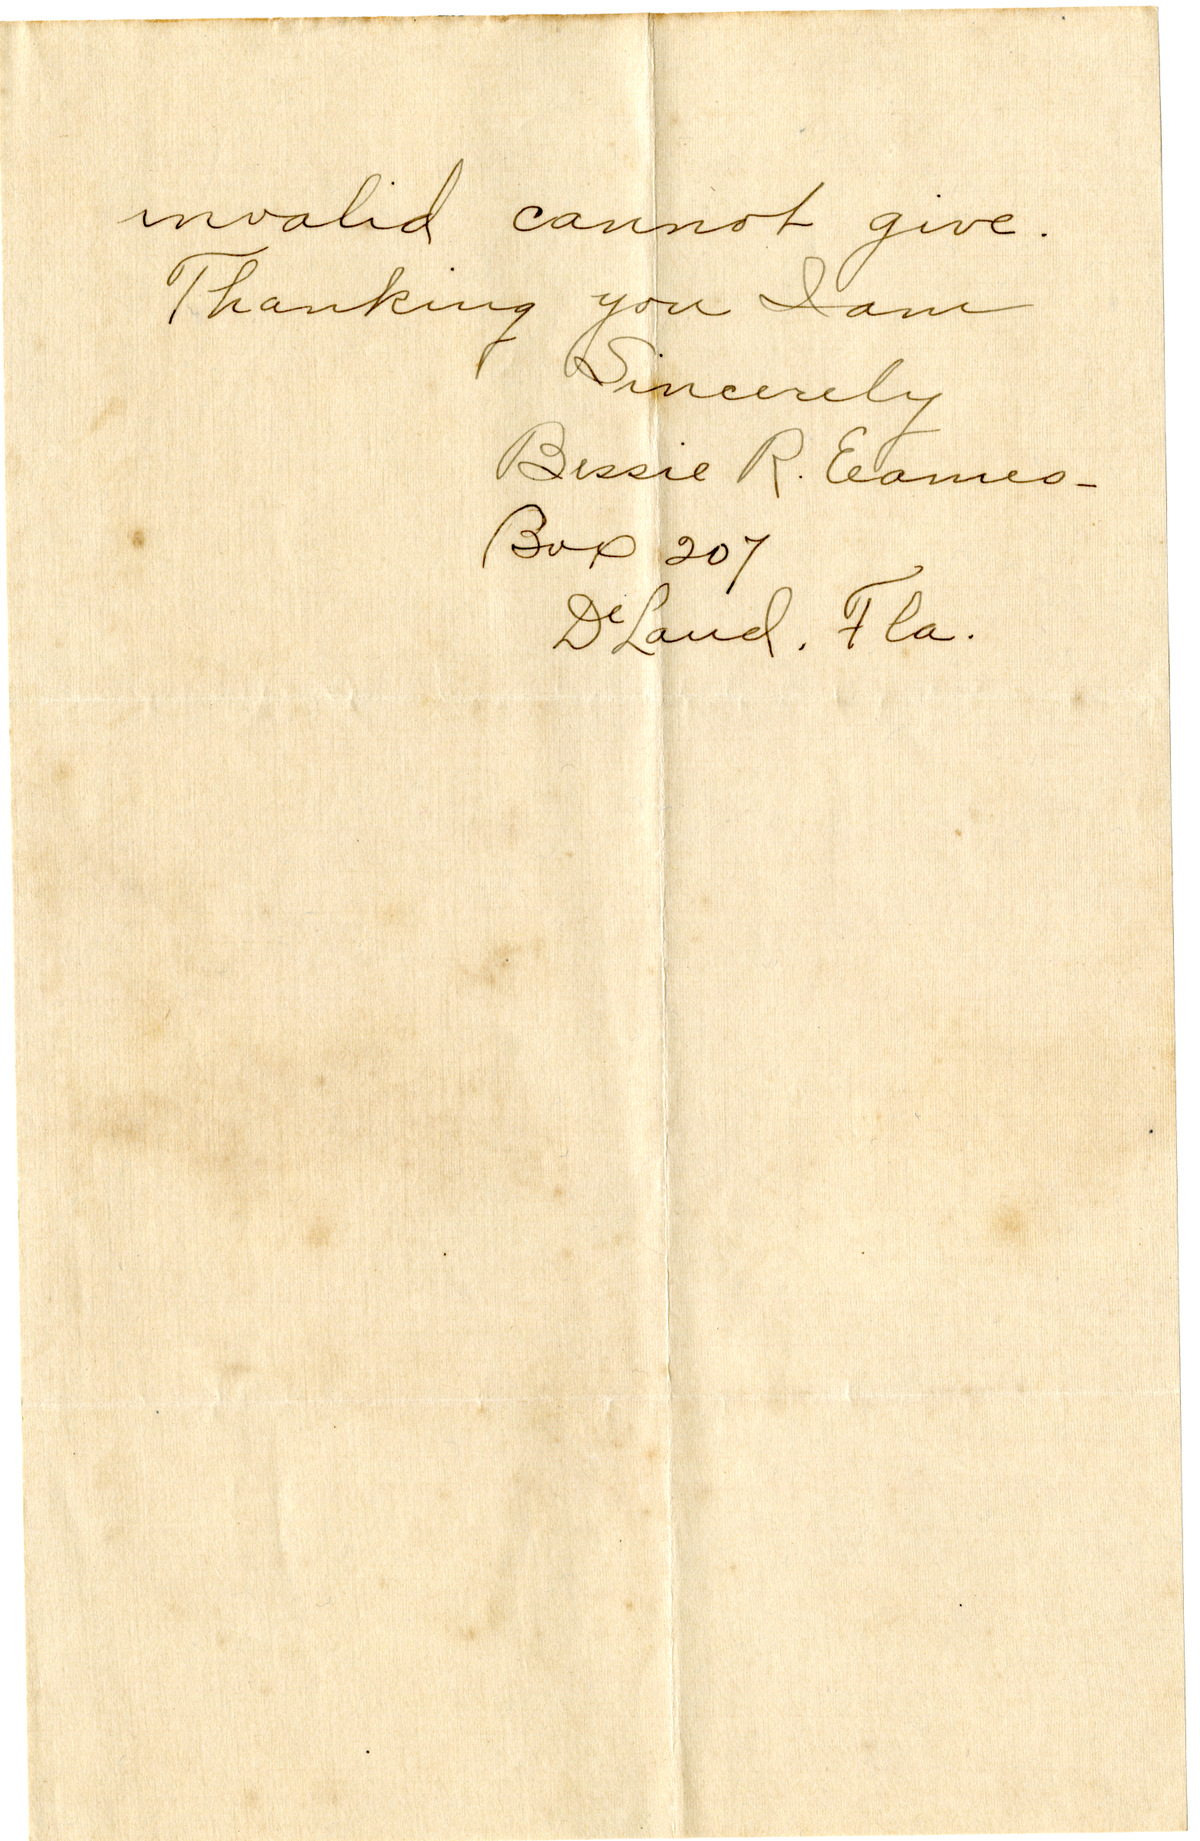 invalid cannot give.
Thanking you I am
Sincerely
Bessie R. Eames-
Box 207
DeLand, Fla.